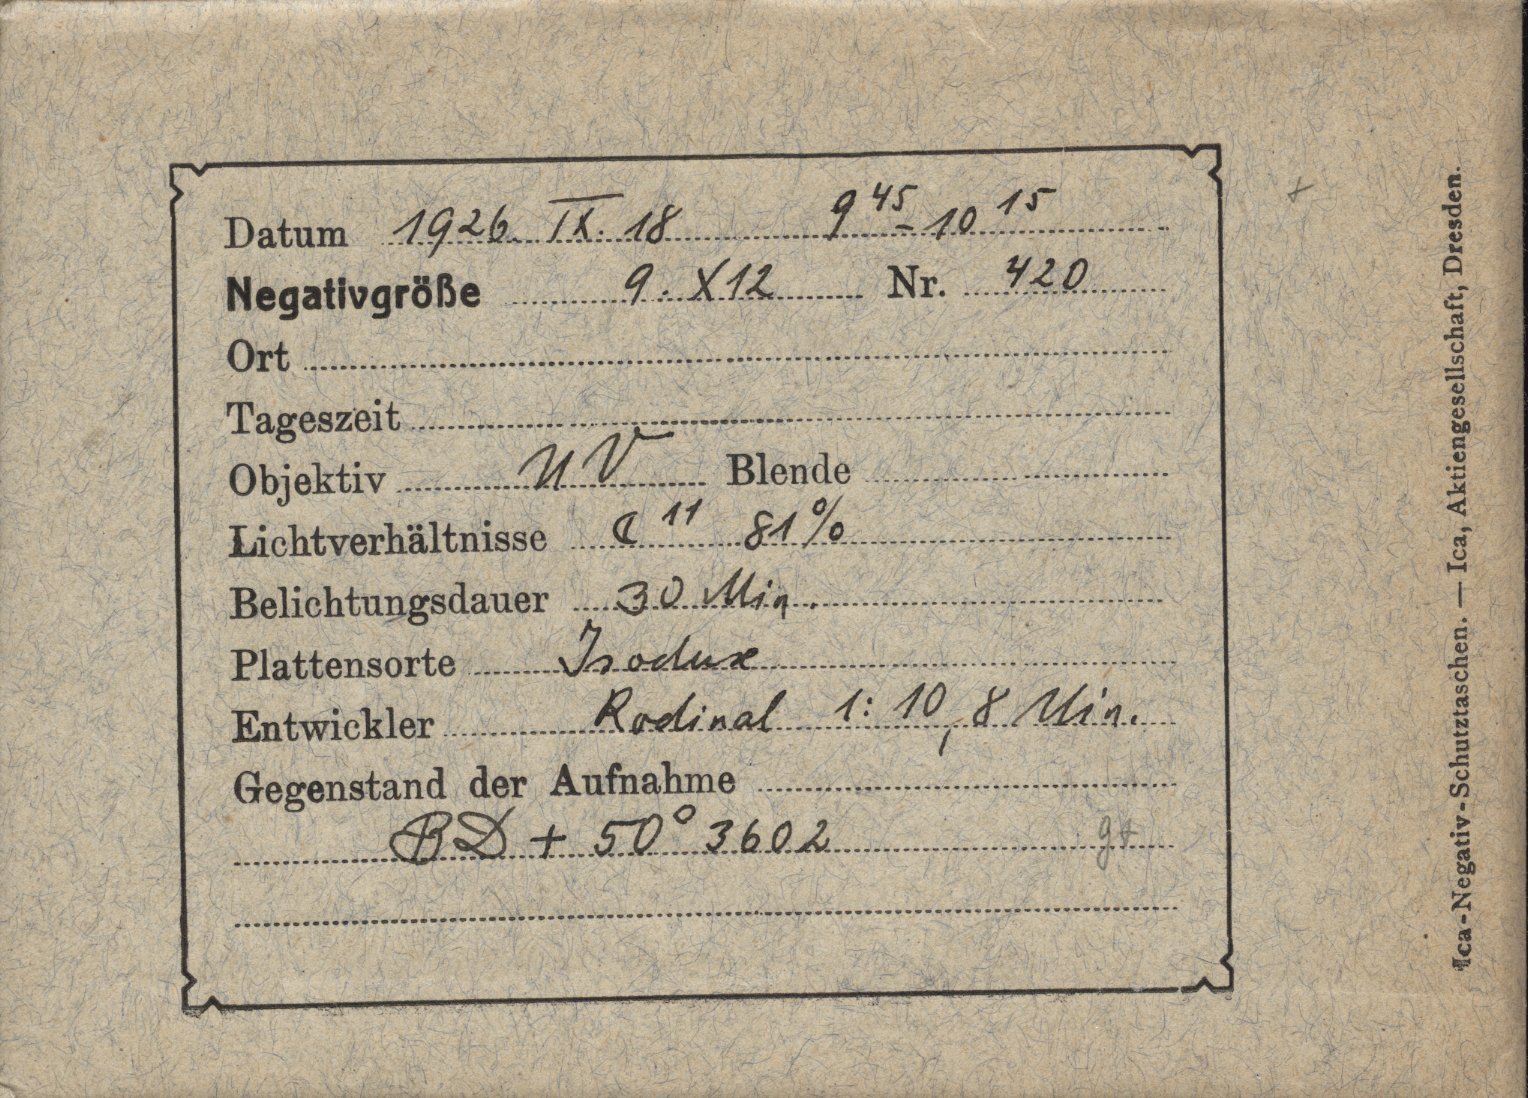 Datum 1926. IX. 18 9 45 - 10 15
Negativgröße 9. X 12 Nr. 420
Ort
Tageszeit
Objektiv UV Blende
Lichtverhältnisse ☾ 11 81%
Belichtungsdauer 30 Min.
Plattensorte Isodux
Entwickler Rodinal 1:10, 8 Min.
Gegenstand der Aufnahme
BD + 50° 3602
Ica-Negativ-Schutztaschen. — Ica, Aktiengesellschaft, Dresden.